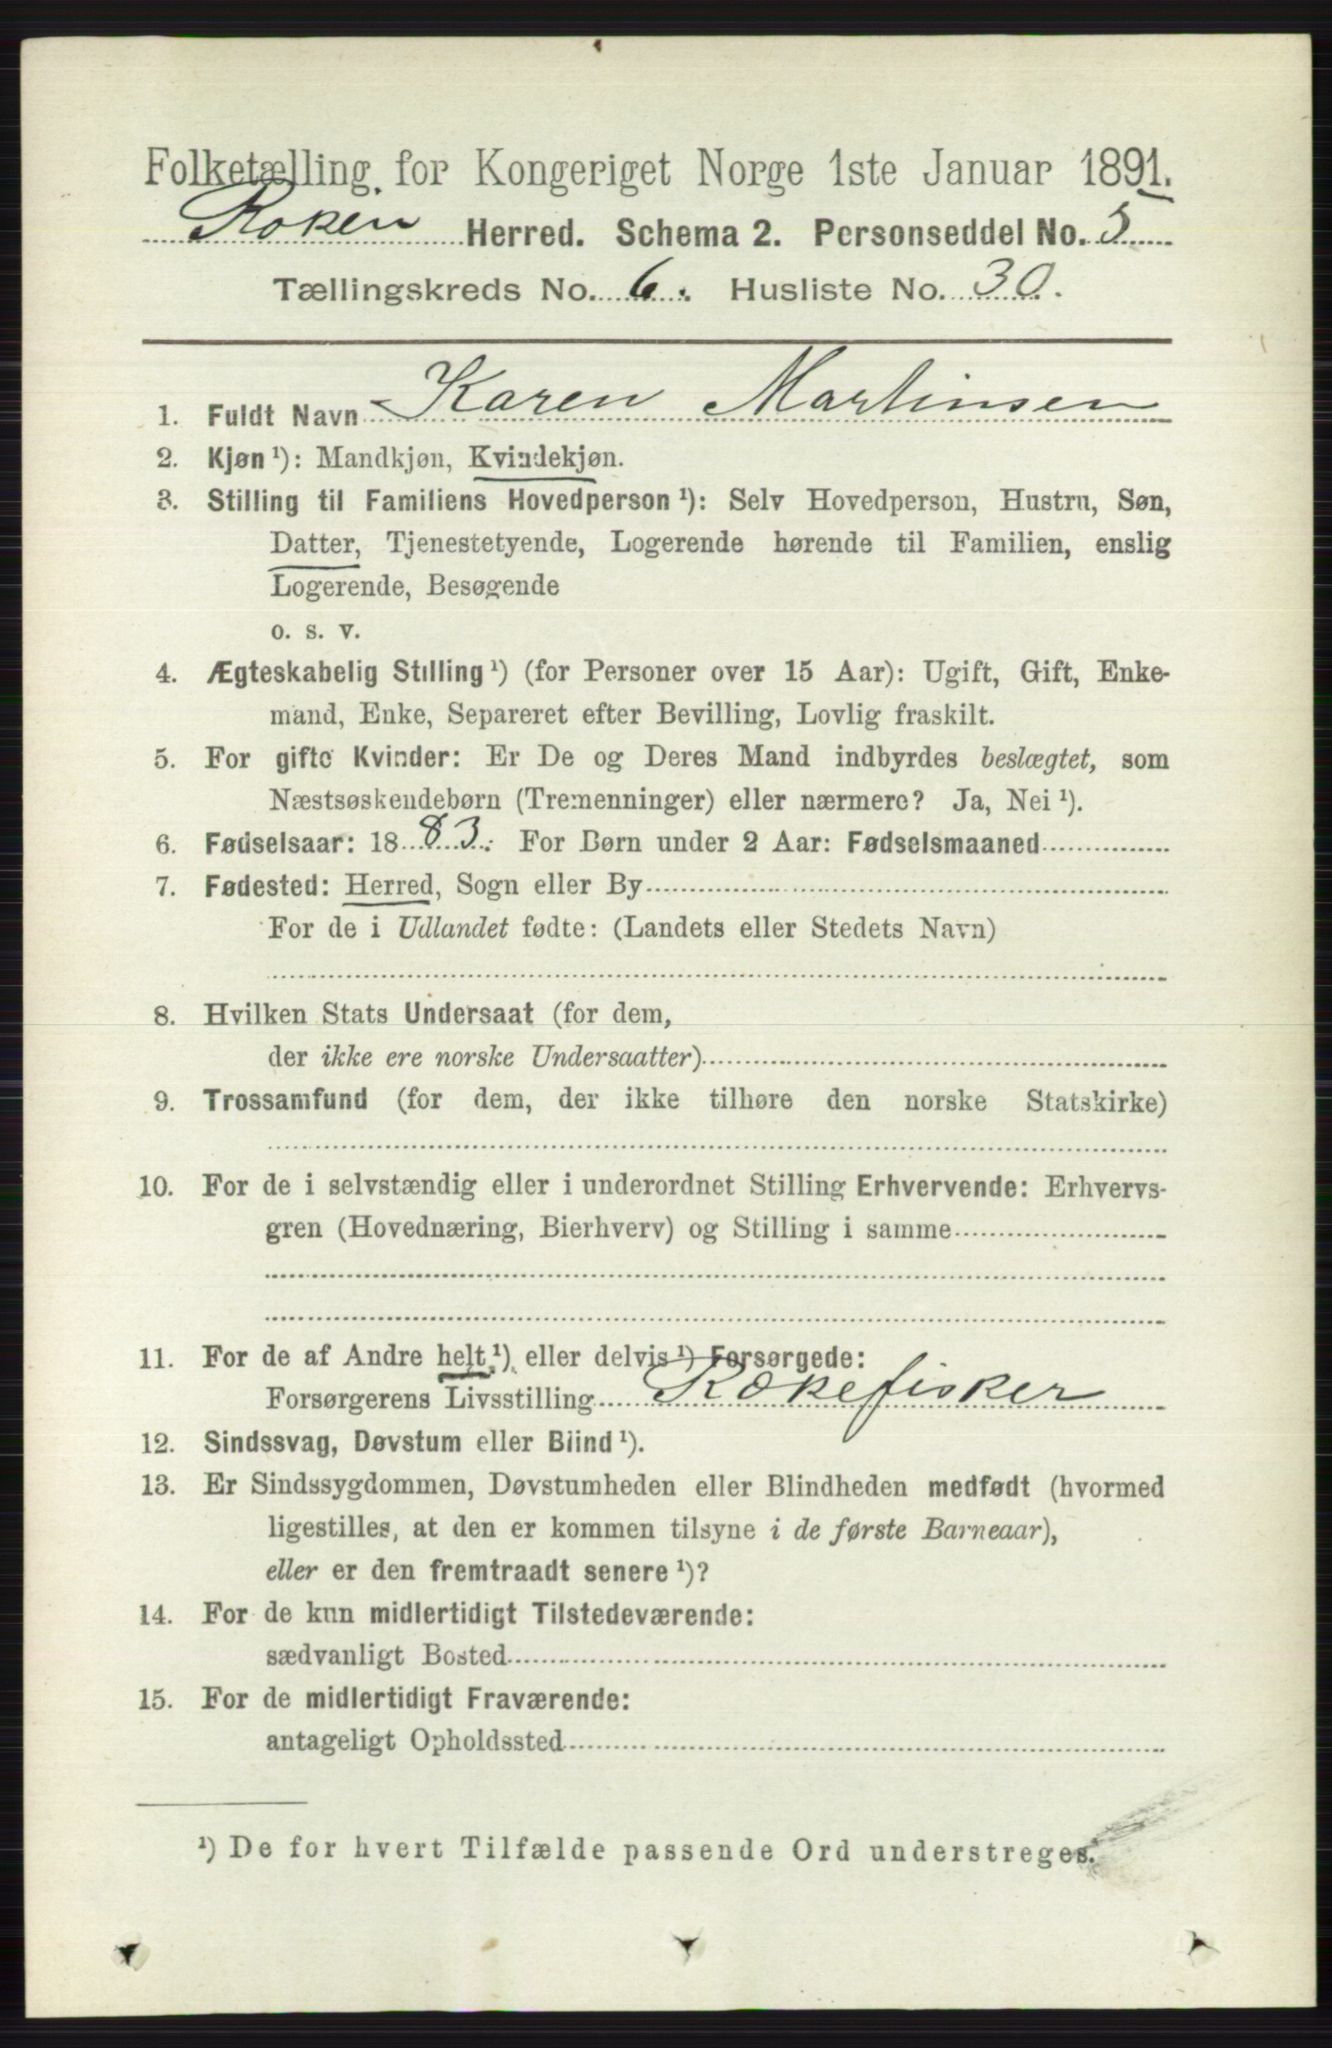 Folketælling for Kongeriget Norge 1ste Januar 1891.
Røken Herred. Schema 2. Personseddel No. 5
Tællingskreds No. 6. Husliste No. 30.
1. Fuldt Navn Karen Martinsen
2. Kjøn ¹): Mandkjøn, Kvindekjøn.
3. Stilling til Familiens Hovedperson ¹): Selv Hovedperson, Hustru, Søn,
Datter, Tjenestetyende, Logerende hørende til Familien, enslig
Logerende, Besøgende
o. s. v.
4. Ægteskabelig Stilling ¹) (for Personer over 15 Aar): Ugift, Gift, Enke-
mand, Enke, Separeret efter Bevilling, Lovlig fraskilt.
5. For gifte Kvinder: Er De og Deres Mand indbyrdes beslægtet, som
Næstsøskendebørn (Tremenninger) eller nærmere? Ja, Nei ¹).
6. Fødselsaar: 1883. For Børn under 2 Aar: Fødselsmaaned
7. Fødested: Herred, Sogn eller By
For de i Udlandet fødte: (Landets eller Stedets Navn)
8. Hvilken Stats Undersaat (for dem,
der ikke ere norske Undersaatter)
9. Trossamfund (for dem, der ikke tilhøre den norske Statskirke)
10. For de i selvstændig eller i underordnet Stilling Erhvervende: Erhvervs-
gren (Hovednæring, Bierhverv) og Stilling i samme
11. For de af Andre helt ¹), eller delvis ¹) Forsørgede:
Forsørgerens Livsstilling Rækefisker
12. Sindssvag, Døvstum eller Blind ¹).
13. Er Sindssygdommen, Døvstumheden eller Blindheden medfødt (hvormed
ligestilles, at den er kommen tilsyne i de første Barneaar),
eller er den fremtraadt senere ¹)?
14. For de kun midlertidigt Tilstedeværende:
sædvanligt Bosted
15. For de midlertidigt Fraværende:
antageligt Opholdssted
¹) De for hvert Tilfælde passende Ord understreges.